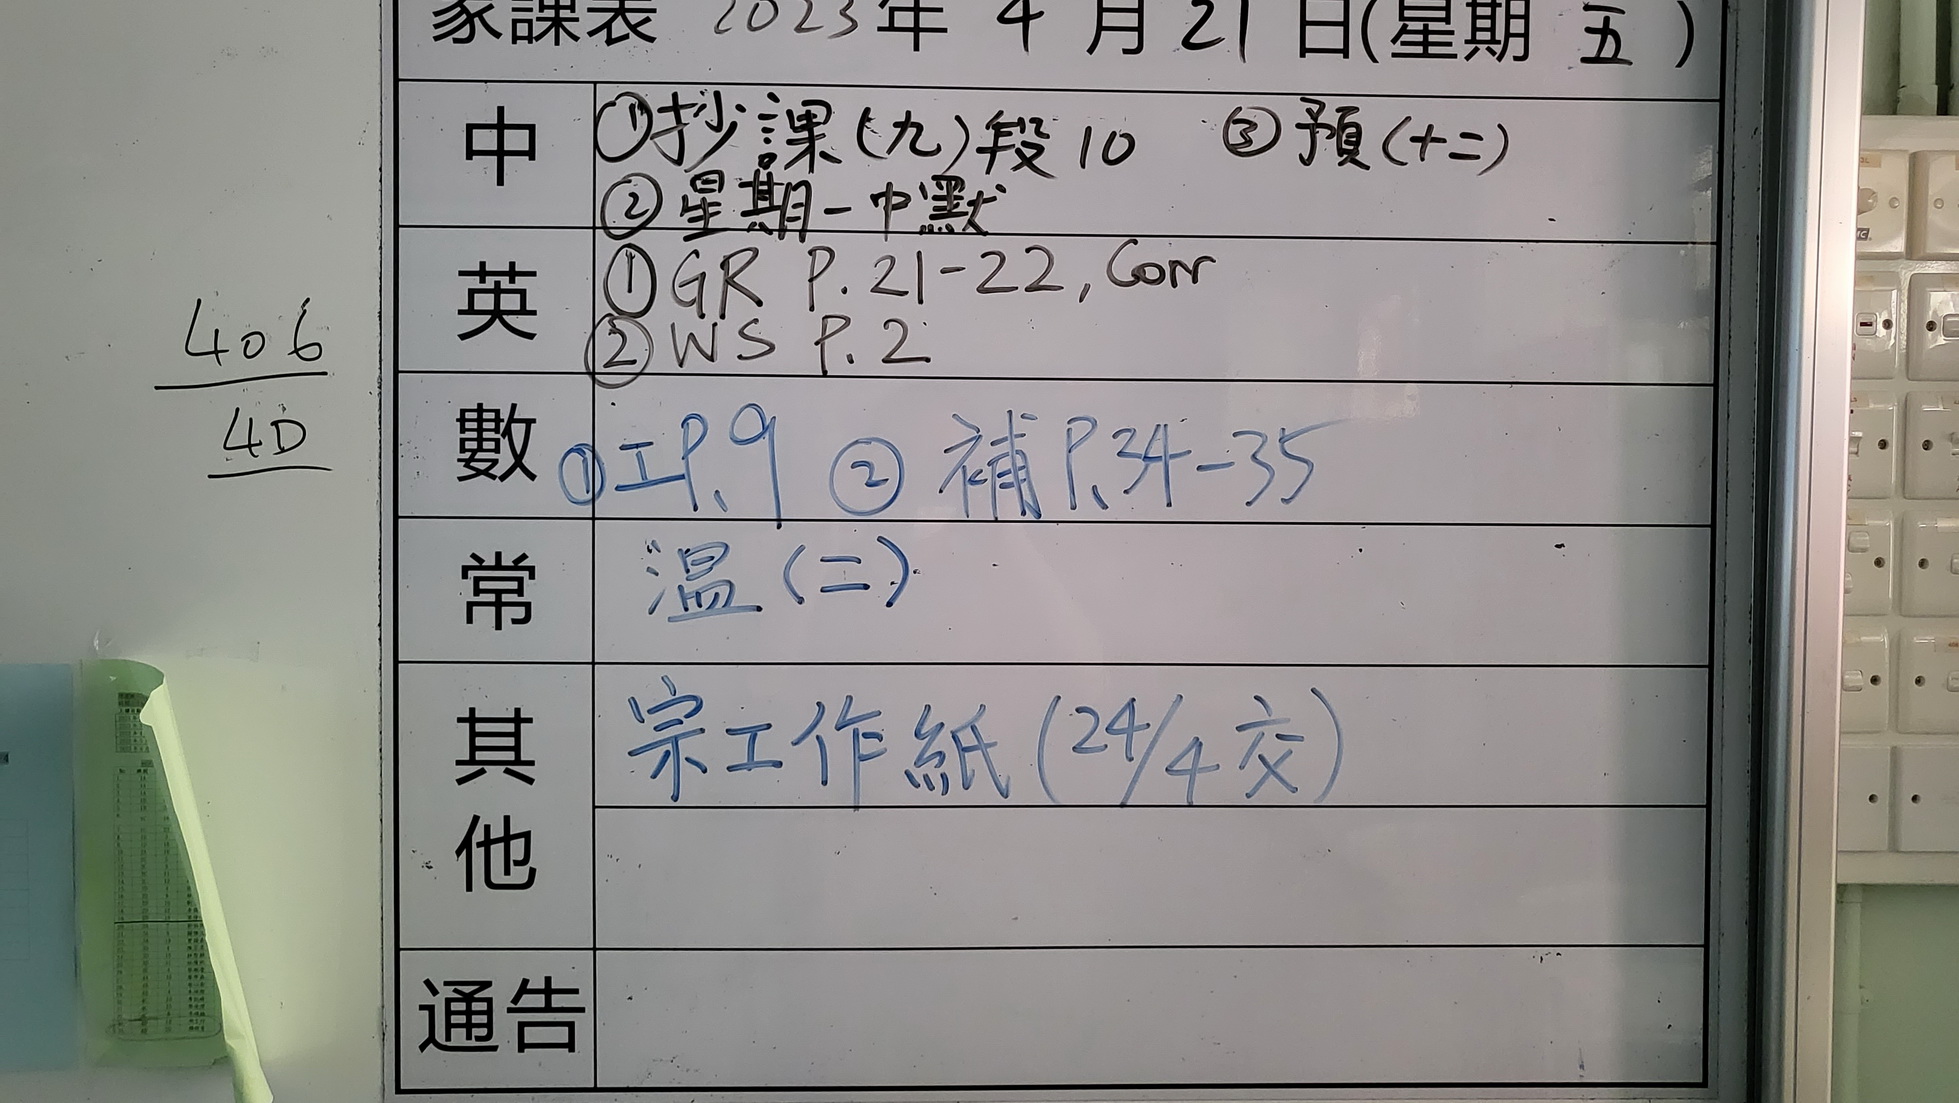 家課表 2023年 4 月 21 日(星期 五 )
中
①抄課(九)段10 ③預(十二)
②星期一中默
英
①GR P.21-22, Corr
②WS P.2
數
①工P.9 ②補P.34-35
常
溫(二)
其他
宗工作紙(24/4交)
通告
406
4D